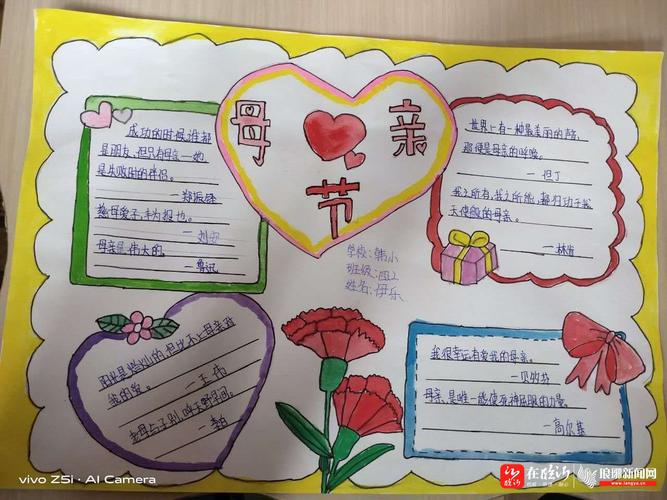 母 亲
节
成功的时候,谁都
是朋友,但只有母亲—她
是失败时的伴侣。
—郑振铎
慈母爱子,非为报也。
—刘安
母亲是伟大的。
—鲁迅
世界上有一种最美丽的声音,
那便是母亲的呼唤。
—但丁
我之所有,我之所能,都归功于我
天使般的母亲。
—林肯
学校:韩小
班级:四2
姓名:伊乐
阳光是灿烂的,但比不上母亲对
我的爱。 —王伟
李白
我很幸运有爱我的母亲。
—贝多芬
母亲,是唯一能使死神屈服的力量。
—高尔基
vivo Z5i · AI Camera
在临沂
琅琊新闻网
www.langya.cn